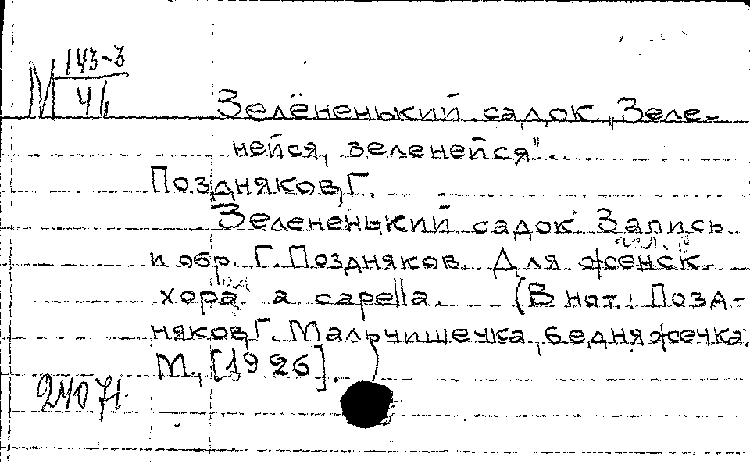 М 143-3
Зелёненький садок „Зеле-
нейся, зеленейся".
Поздняков, Г.
Зелененький садок. Запись
и обр. Г. Поздняков. Для женск.
хора a capella. (В нот.: Позд-
няков, Г. Мальчишечка, бедняжечка.
М., [1926].)
24071.